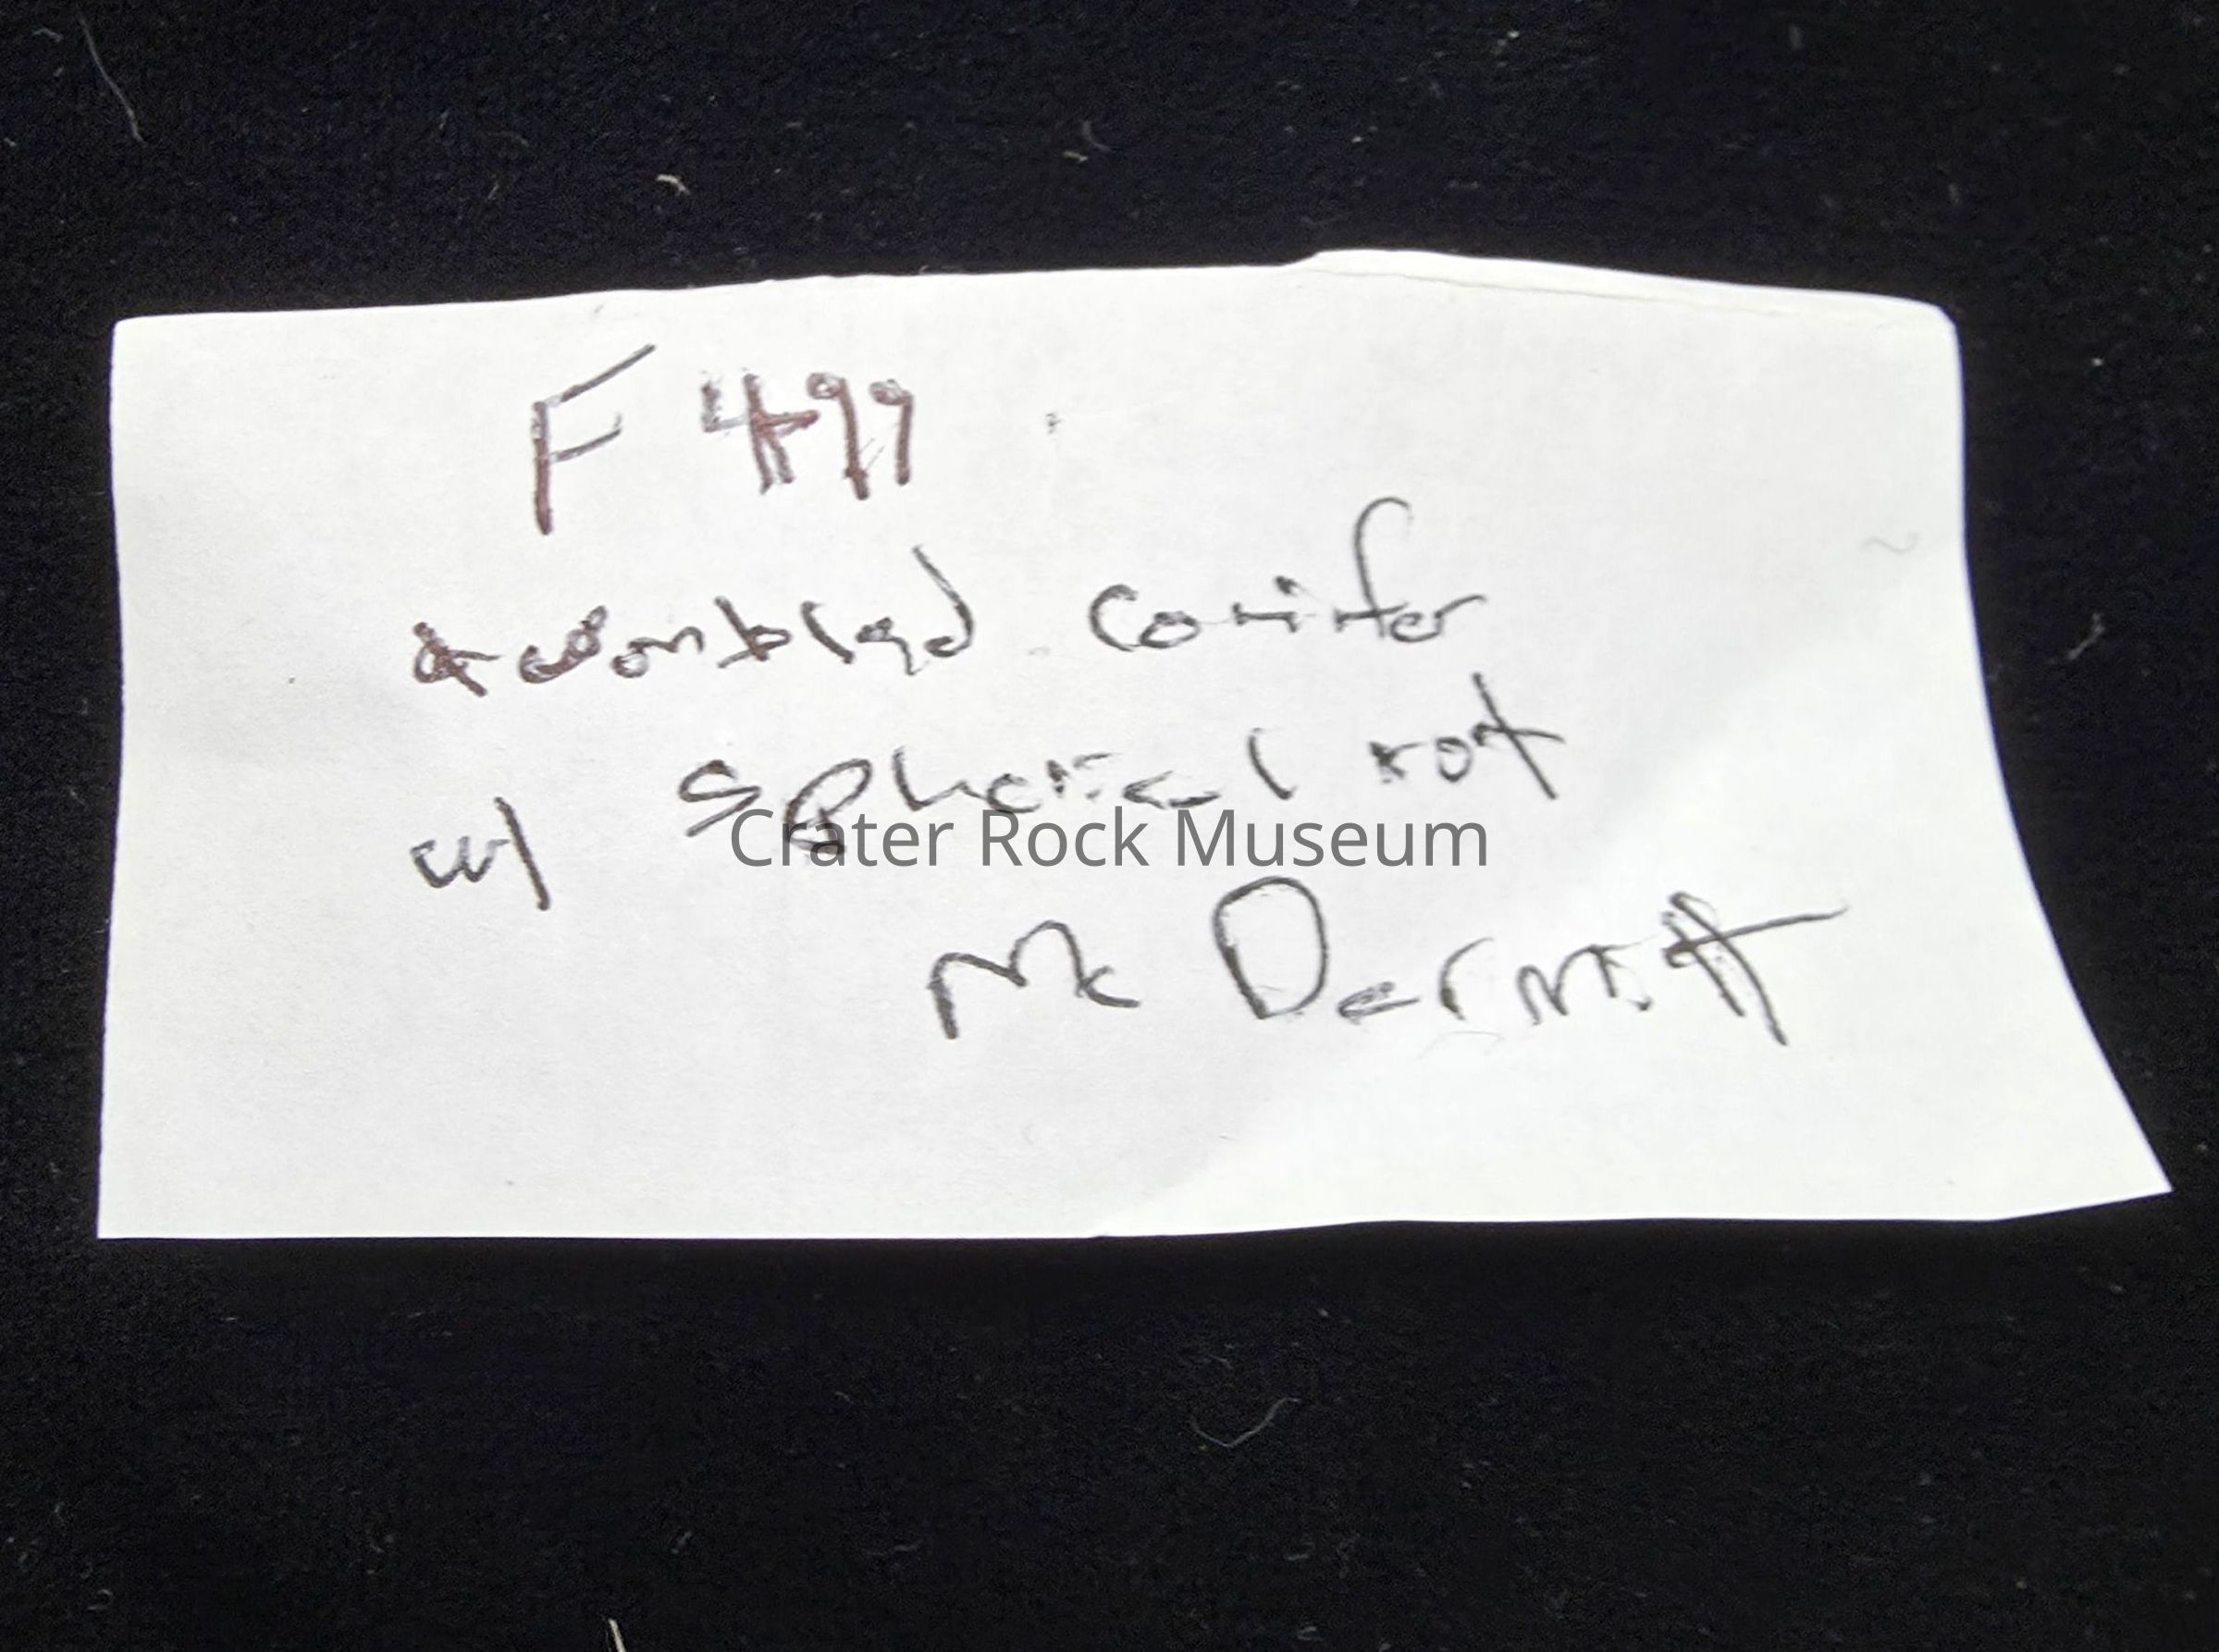 F 499
conifer
w/ spherical rot
Mc Dermott
Crater Rock Museum